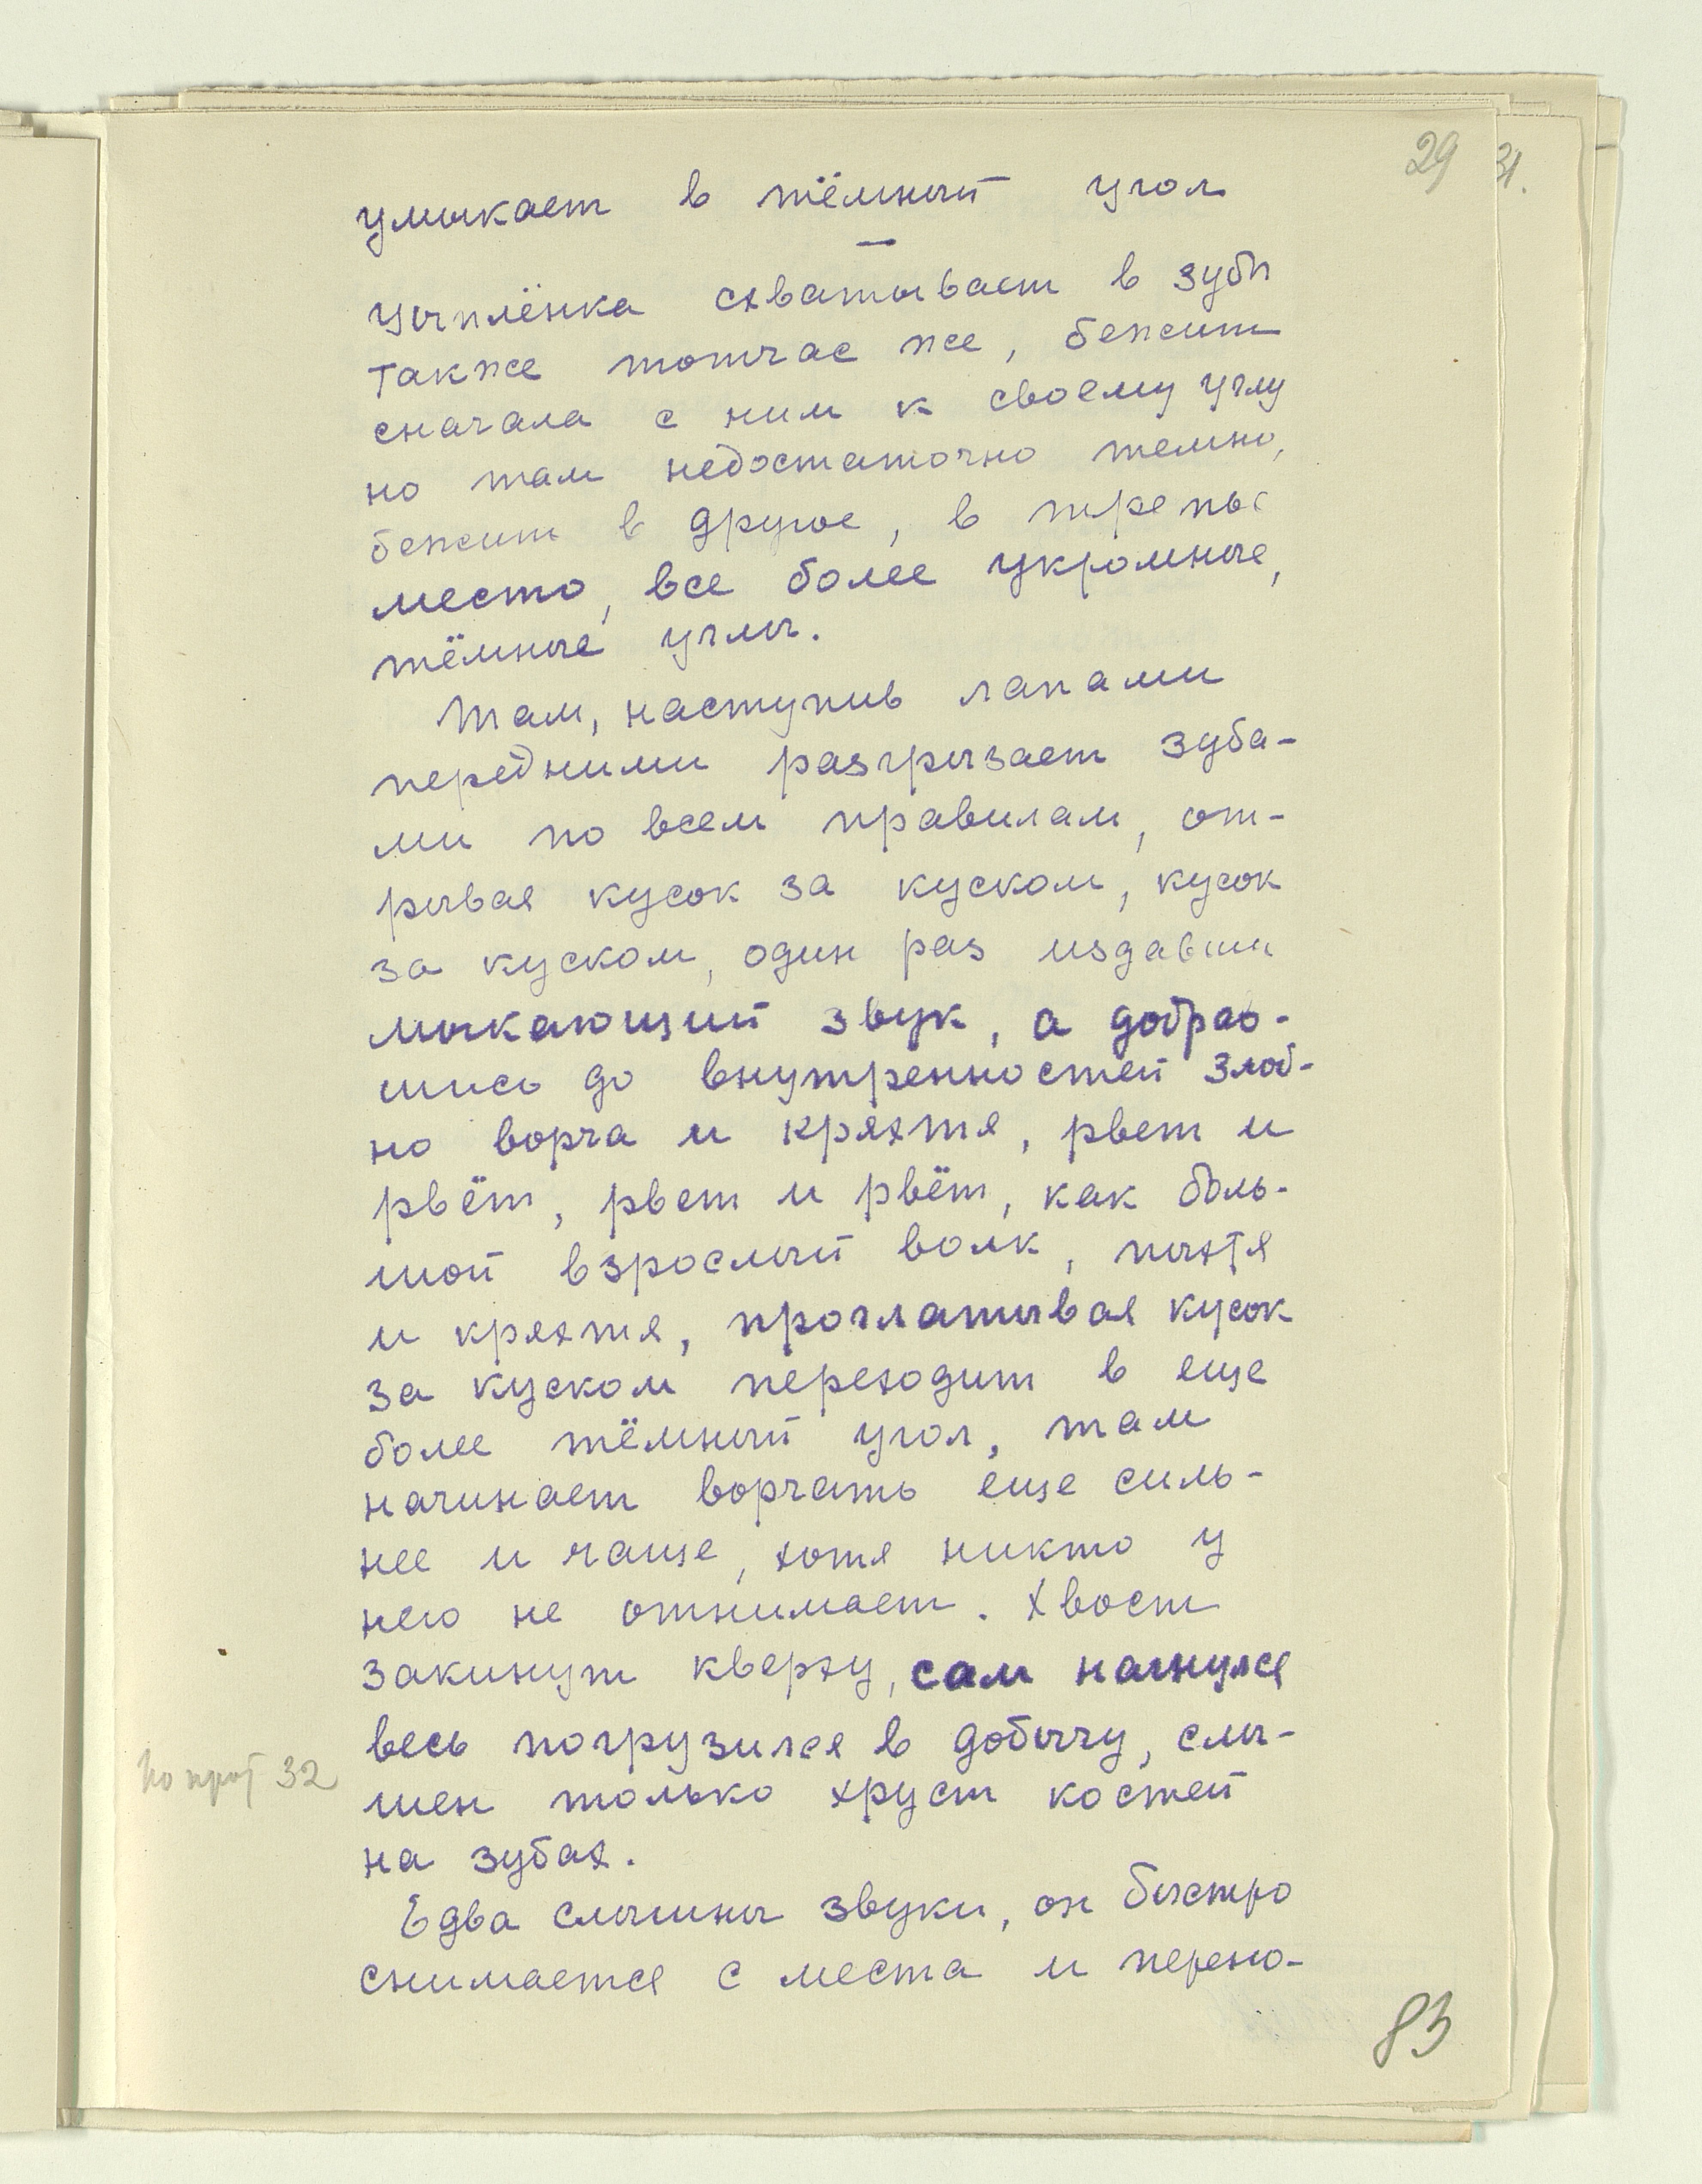 29
31.
умыкает в тёмный угол
—
Цыплёнка схватывает в зубы
также тотчас же, бежит
сначала с ним к своему углу
но там недостаточно темно,
бежит в другое, в третье
место, все более укромные,
тёмные углы.
Там, наступив лапами
передними разгрызает зуба-
ми по всем правилам, от-
рывая кусок за куском, кусок
за куском, один раз издавши
мыкающий звук, а добрав-
шись до внутренностей злоб-
но ворча и кряхтя, рвет и
рвёт, рвет и рвёт, как боль-
шой взрослый волк, пыхтя
и кряхтя, проглатывая кусок
за куском переходит в еще
более тёмный угол, там
начинает ворчать еще силь-
нее и чаще, хотя никто у
него не отнимает. Хвост
закинут кверху, сам нагнулся
весь погрузился в добычу, слы-
шен только хруст костей
на зубах.
Едва слышны звуки, он быстро
снимается с места и перено-
32
83